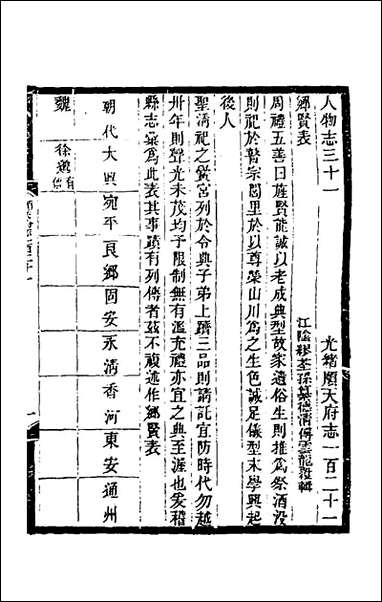 人物志三十一　光緒順天府志一百二十一
鄉賢表　江陰繆荃孫纂德清傅雲龍覆輯
周禮五善日旌賢能誠以老成典型故家遺俗生則推為祭酒沒
則祀於瞽宗閭里於以尊榮山川為之生色誠足儀型末學興起
後人
聖清祀之黌宮列於令典子弟上躋三品則請託宜防時代勿越
卅年則聲光未茂均予限制無有濫充禮亦宜之典至渥也爰稽
縣志彙為此表其事蹟有列傳者茲不複述作鄉賢表
朝代大興宛平良鄉固安永清香河東安通州
魏　徐邈有傳